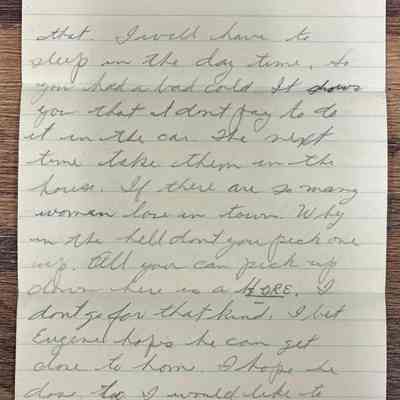 that. I will have to
sleep in the day time. So
you had a bad cold. It shows
you that it dont pay to do
it in the car. The next
time take them in the
house. If there are so many
woman lose in town. Why
in the hell dont you pick one
up. All your can pick up
down here is a HORE. I
dont go for that kind. I bet
Eugene hops he can get
close to hom. I hope he
dose too I would like to